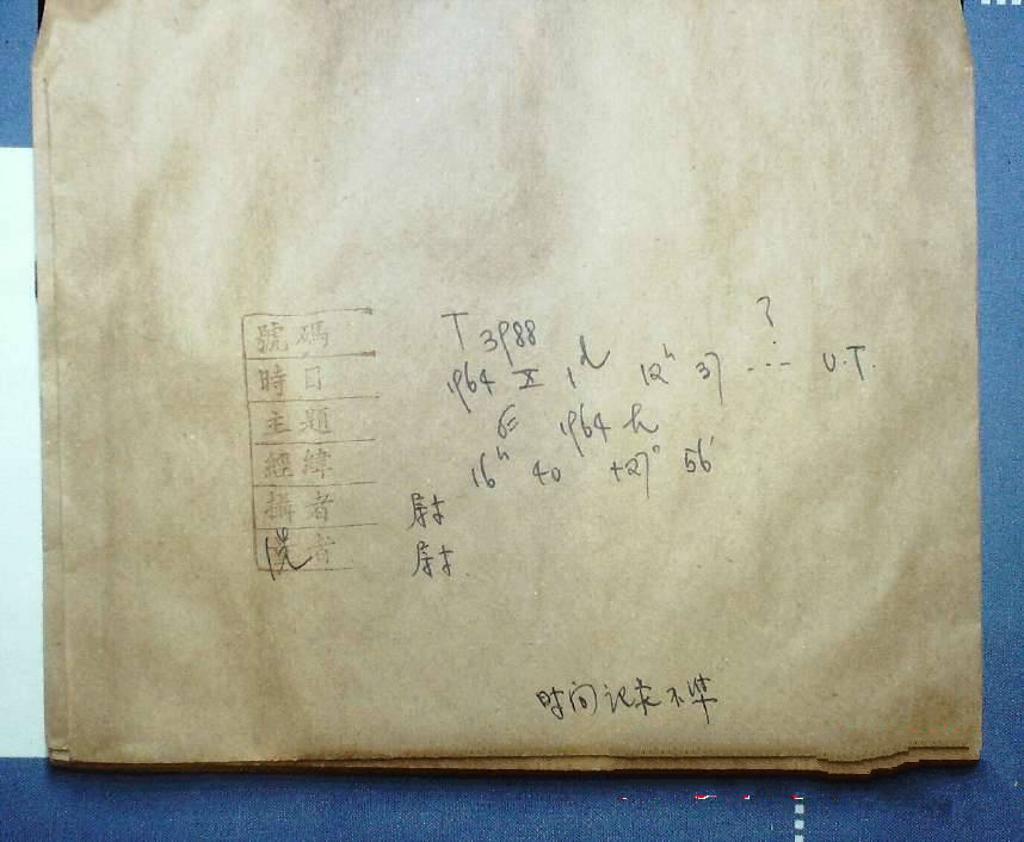 號碼 T 3988
時日 1964 X 1d 12h 37 --- ? U.T.
主題 1964 h
經緯 16h 40 +27° 56'
攝者 尉
者 尉
时间记录不准